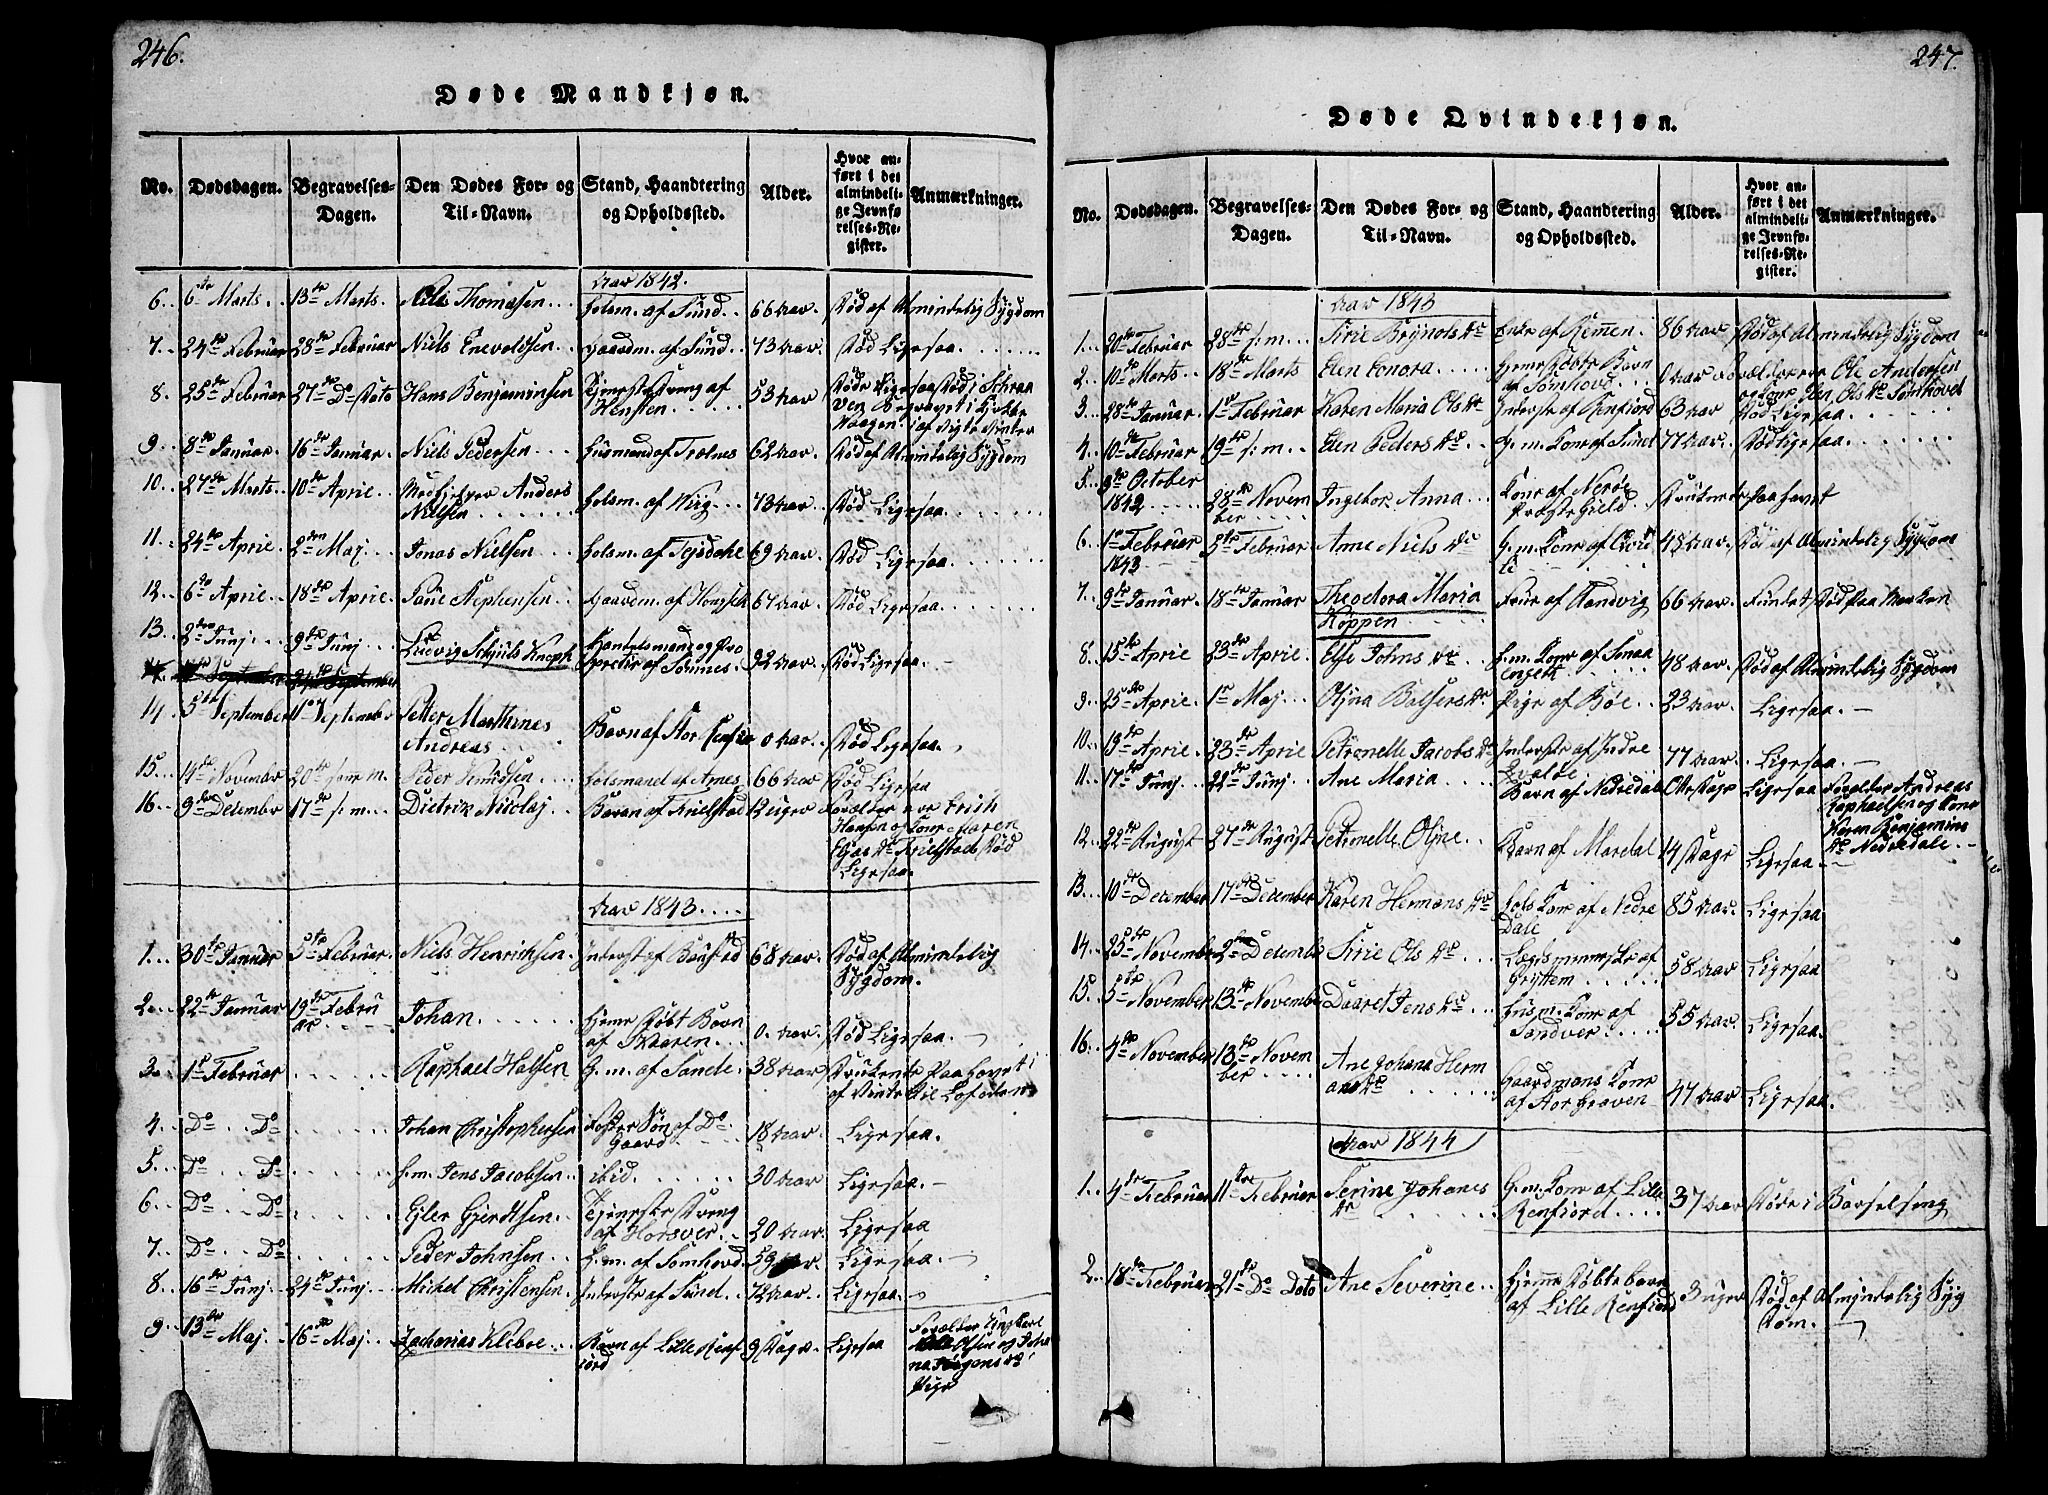 246.
Døde Mandkjøn.
No. Dødsdagen. Begravelses-Dagen. Den Dødes For- og Til-Navn. Stand, Haandtering og Opholdssted. Alder. Hvor anført i det almindelige Jevnførelses-Register. Anmærkninger.
Aar 1842.
6. 6te Marts. 13de Marts. Thomassen holsm. af Sund 66 Aar Død af Almindelig Sygdom
7. 24de Februar 28de Februar Niels Enevoldsen gaardm. af Sund 73 Aar. Død Ligesaa.
8. 25de Februar 27de Do Dato Hans Benjaminsen Tjenestedreng af Hensten 53 Aar
9. 8de Januar. 16de Januar. Niels Pedersen Husmand af Trælnes 62 Aar Død af Almindelig Sygdom
10. 27de Marts 10de April Anders Nielsen holsm. af 73 Aar Død Ligesaa.
11. 24de April 2den Maj Jonas Nielsen holsm. af Tejsdahl 69 Aar Død Ligesaa.
12. 6te April 18de April Nephensen Gaardm. af 67 Aar Død Ligesaa.
13. 2den Junj 9de Junj Ludvig Schjuls Knoph Handelsmand og Propretir af Somnes. 92 Aar. Død Ligesaa.
14. 5te September 11te September Petter Marthines Andreas Barn af Stor 0 Aar. Død Ligesaa.
15. 14de November 20de s. m. Peder Knudsen holsmand af Arnes 66 Aar Død Ligesaa
16. 9de December 17de s: m. Dietrik Nicolaj Barn af Trielstad 12 uger Forælder ere Erich Hansen og Kone Maren Elias Dr Trielstad Død Ligesaa.
Aar 1843.
1. 30te Januar 5te Februar Niels Henrichsen Inderst af Baustad 68 Aar. Død af Almindelig Sygdom.
2. 22de Januar 19de Februar Johan Hjeme Døbt Barn af Skaaren 0 Aar. Død Ligesaa.
3. 1te Februar Raphael Halsen G. m. af Sande 38 Aar Druknede Paa havet i af Vinte til Lofoden
4. Do Do Johan Christophersen Foster Søn af Do Gaard 18 Aar. Ligesaa.
5. Do Do h. m. Jens Jacobsen ibid. 30 Aar Ligesaa.
6. Do Do Ejler Gjertsen Tjenestedreng af Horsver 20 Aar. Ligesaa
7. Do Do Peder Johnsen h. m. af Somhovd. 59 Aar. Ligesaa.
8. 16de Junj. 24de Junj Michel Christensen Inderste af Sund. 72 Aar. Ligesaa.
9. 13de Maj. 16de Maj Zacharias Kleboe Barn af Lille Renfiord 9 Dage. Ligesaa Forælder Ungkarl Olsen og Johana Jørgens Dr Pige
247.
Døde Qvindekjøn.
No. Dødsdagen. Begravelses-Dagen. Den Dødes For- og Til-Navn. Stand, Haandtering og Opholdssted. Alder. Hvor anført i det almindelige Jevnførelses-Register. Anmærkninger.
Aar 1843
1. 20de Februar 28de s: m. Sirie Brynols Dr Enke af Remen 86 Aar Død af Almindelig Sygdom
2. 10de Marts 18de Marts Elen Eonora Hjeme Døbt Barn af Somhovd 0 Aar Forælder er Ole Andersen og Kone Ols Dr Somhovd
3. 28de Januar. 1te Februar Karen Maria Ols Dr Inderste af Renfiord 63 Aar Død Ligesaa.
4. 10de Februar 19de s: m. Elen Peders Dr G. m. Kone af Sund 77 Aar. Død Ligesaa.
5. 9de October 1842 28de November Ingebor Anna Kone af Nerøe Præstegield Druknede Paa havet
6. 1te Februar 1843 5te Februar Ane Niels Dr G. m. Kone af 48 Aar. Død af Almindelig Sygdom
7. 9de Januar. 18de Januar Theodora Maria Høppen Frue af Randvig 66 Aar Fundet Død Paa Marken
8. 15de April 23de April Else Johns Dr h. m. Kone af 48 Aar Død af Almindelig Sygdom
9. 25de April 1te Maj Olijna Baltsers Dr Pige af Bøe 23 Aar. Ligesaa.
10. 13de April 23de April Petronelle Jacobs Dr Inderste af Indre 77 Aar. Ligesaa.
11. 17de Junj 21de Junj Ane Maria Barn af Nedredal Otte Dage Ligesaa Forælder Andreas Raphaelsen og Kone Karen Benjamins Dr Nedredale.
12. 22de August 27de August Petronelle Olijne Barn af Mardal 14 Dage Ligesaa.
13. 10de December 17de December Karen Hermans Dr hols Kone af Nedre Dale 85 Aar. Ligesaa
14. 25de November 2den December Sirie Ols Dr Lægds menneske af Gryttem 58 Aar Ligesaa
15. 5te November 13de November Daaret Jens Dr Hus m. Kone af Sandver 55 Aar. Ligesaa.
16. 4de November 13de November Ane Johana Hermans Dr Gaardmans Kone af Stor Graven 47 Aar Ligesaa.
Aar 1844
1. 4de Februar 11te Februar Serine Johanes Dr G. m. Kone af Lille Renfiord 37 Aar Døde i Barselseng
2. 18de Februar 21de Do Dato Ane Severine Hjemme Døbte barn af Lille Renfiord 3 uger Død af Almindelig Sygdom.